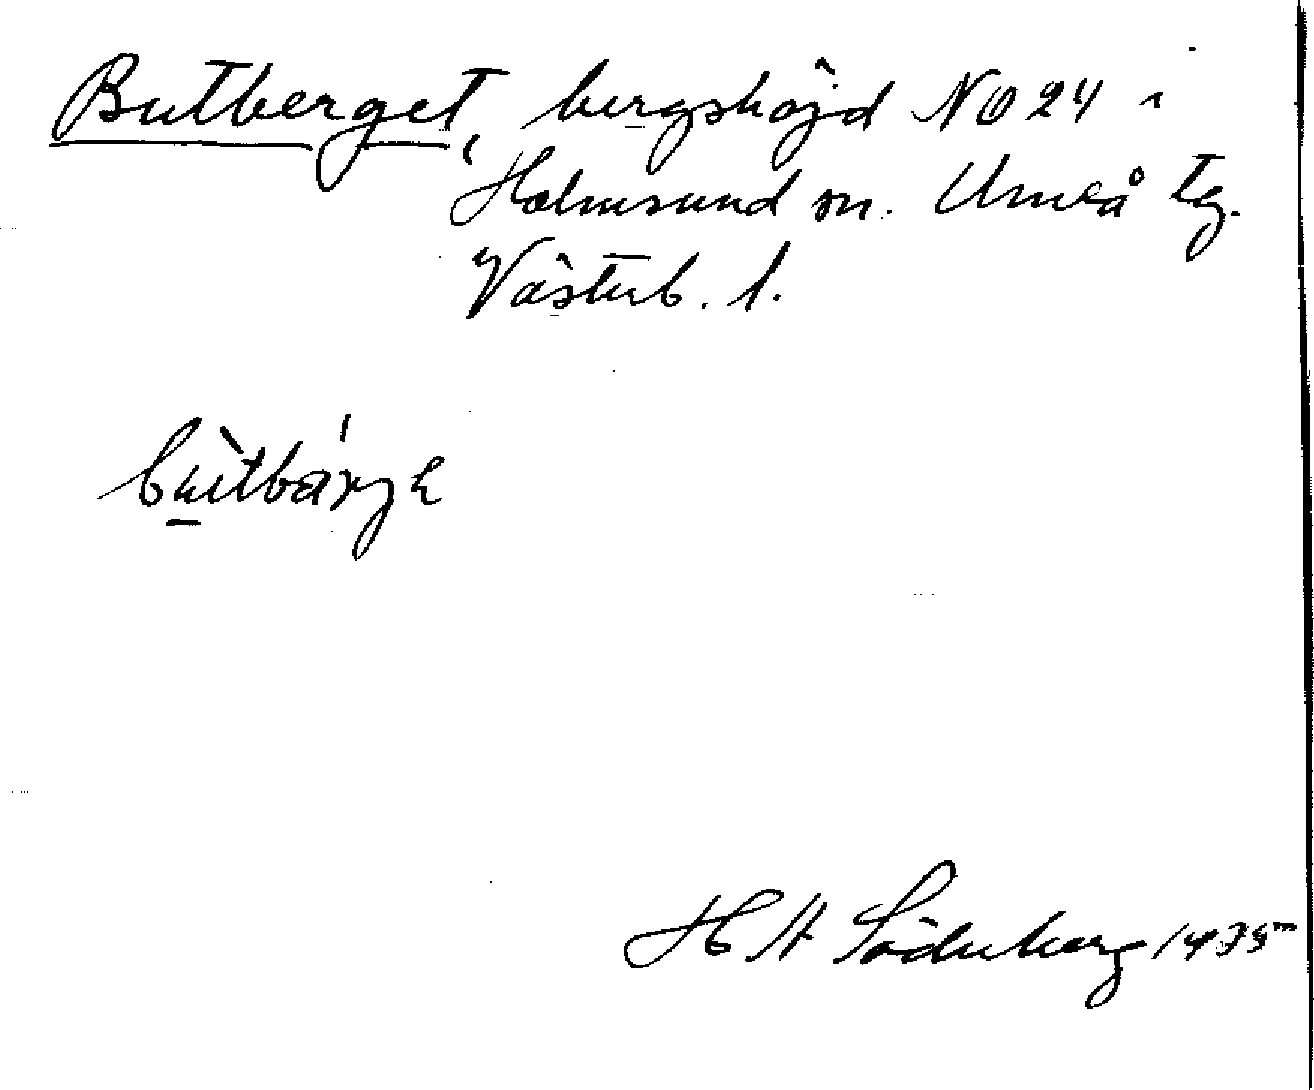 Butberget, bergshöjd NO 24 i
Holmsund sn. Umeå tg.
Västerb. l.
H A Söderberg 1935